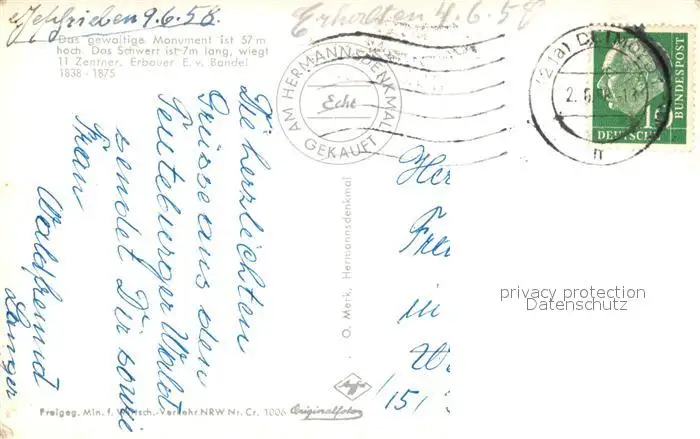 Geschrieben 9.6.58.
Erhalten 4.6.58
Das gewaltige Monument ist 57 m
hoch. Das Schwert ist 7m lang, wiegt
11 Zentner. Erbauer E. v. Bandel
1838 - 1875
AM HERMANNSDENKMAL
Echt
GEKAUFT
(21a) DETMOLD
DEUTSCHE
BUNDESPOST
Die herzlichsten
Grüsse aus dem
Teuteburger Wald
sendet Dir sowie
Frau
Waldfreund
Langer
O. Merk, Hermannsdenkmal
Her
Frei
in
privacy protection
Datenschutz
Agfa
Freigeg. Min. f. Wirtsch.-Verkehr NRW Nr. Cr. 1006 Originalfoto